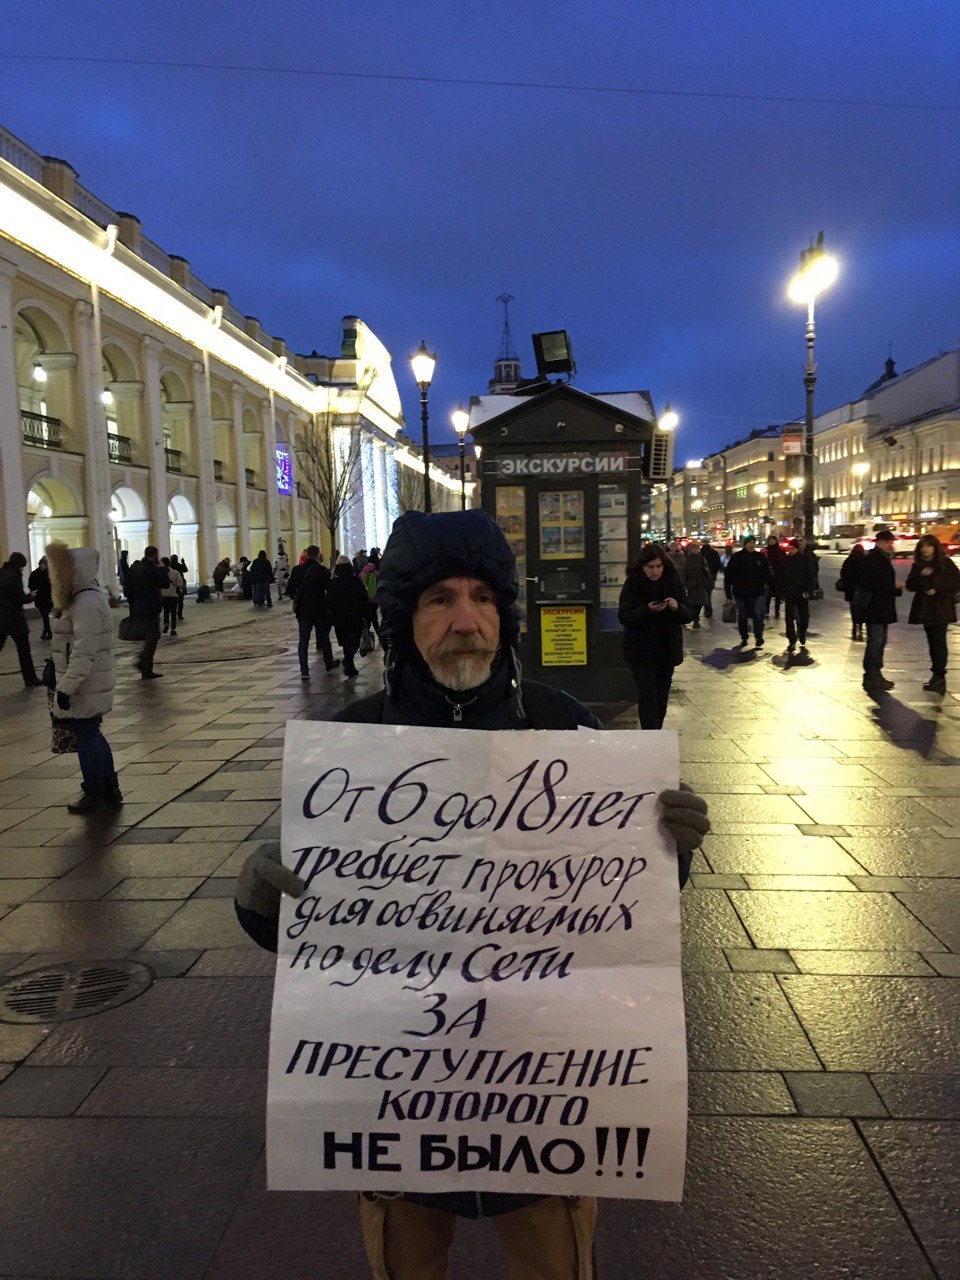 ЭКСКУРСИИ
ЭКСКУРСИИ
От 6 до 18 лет
требует прокурор
для обвиняемых
по делу Сети
ЗА
ПРЕСТУПЛЕНИЕ
КОТОРОГО
НЕ БЫЛО!!!